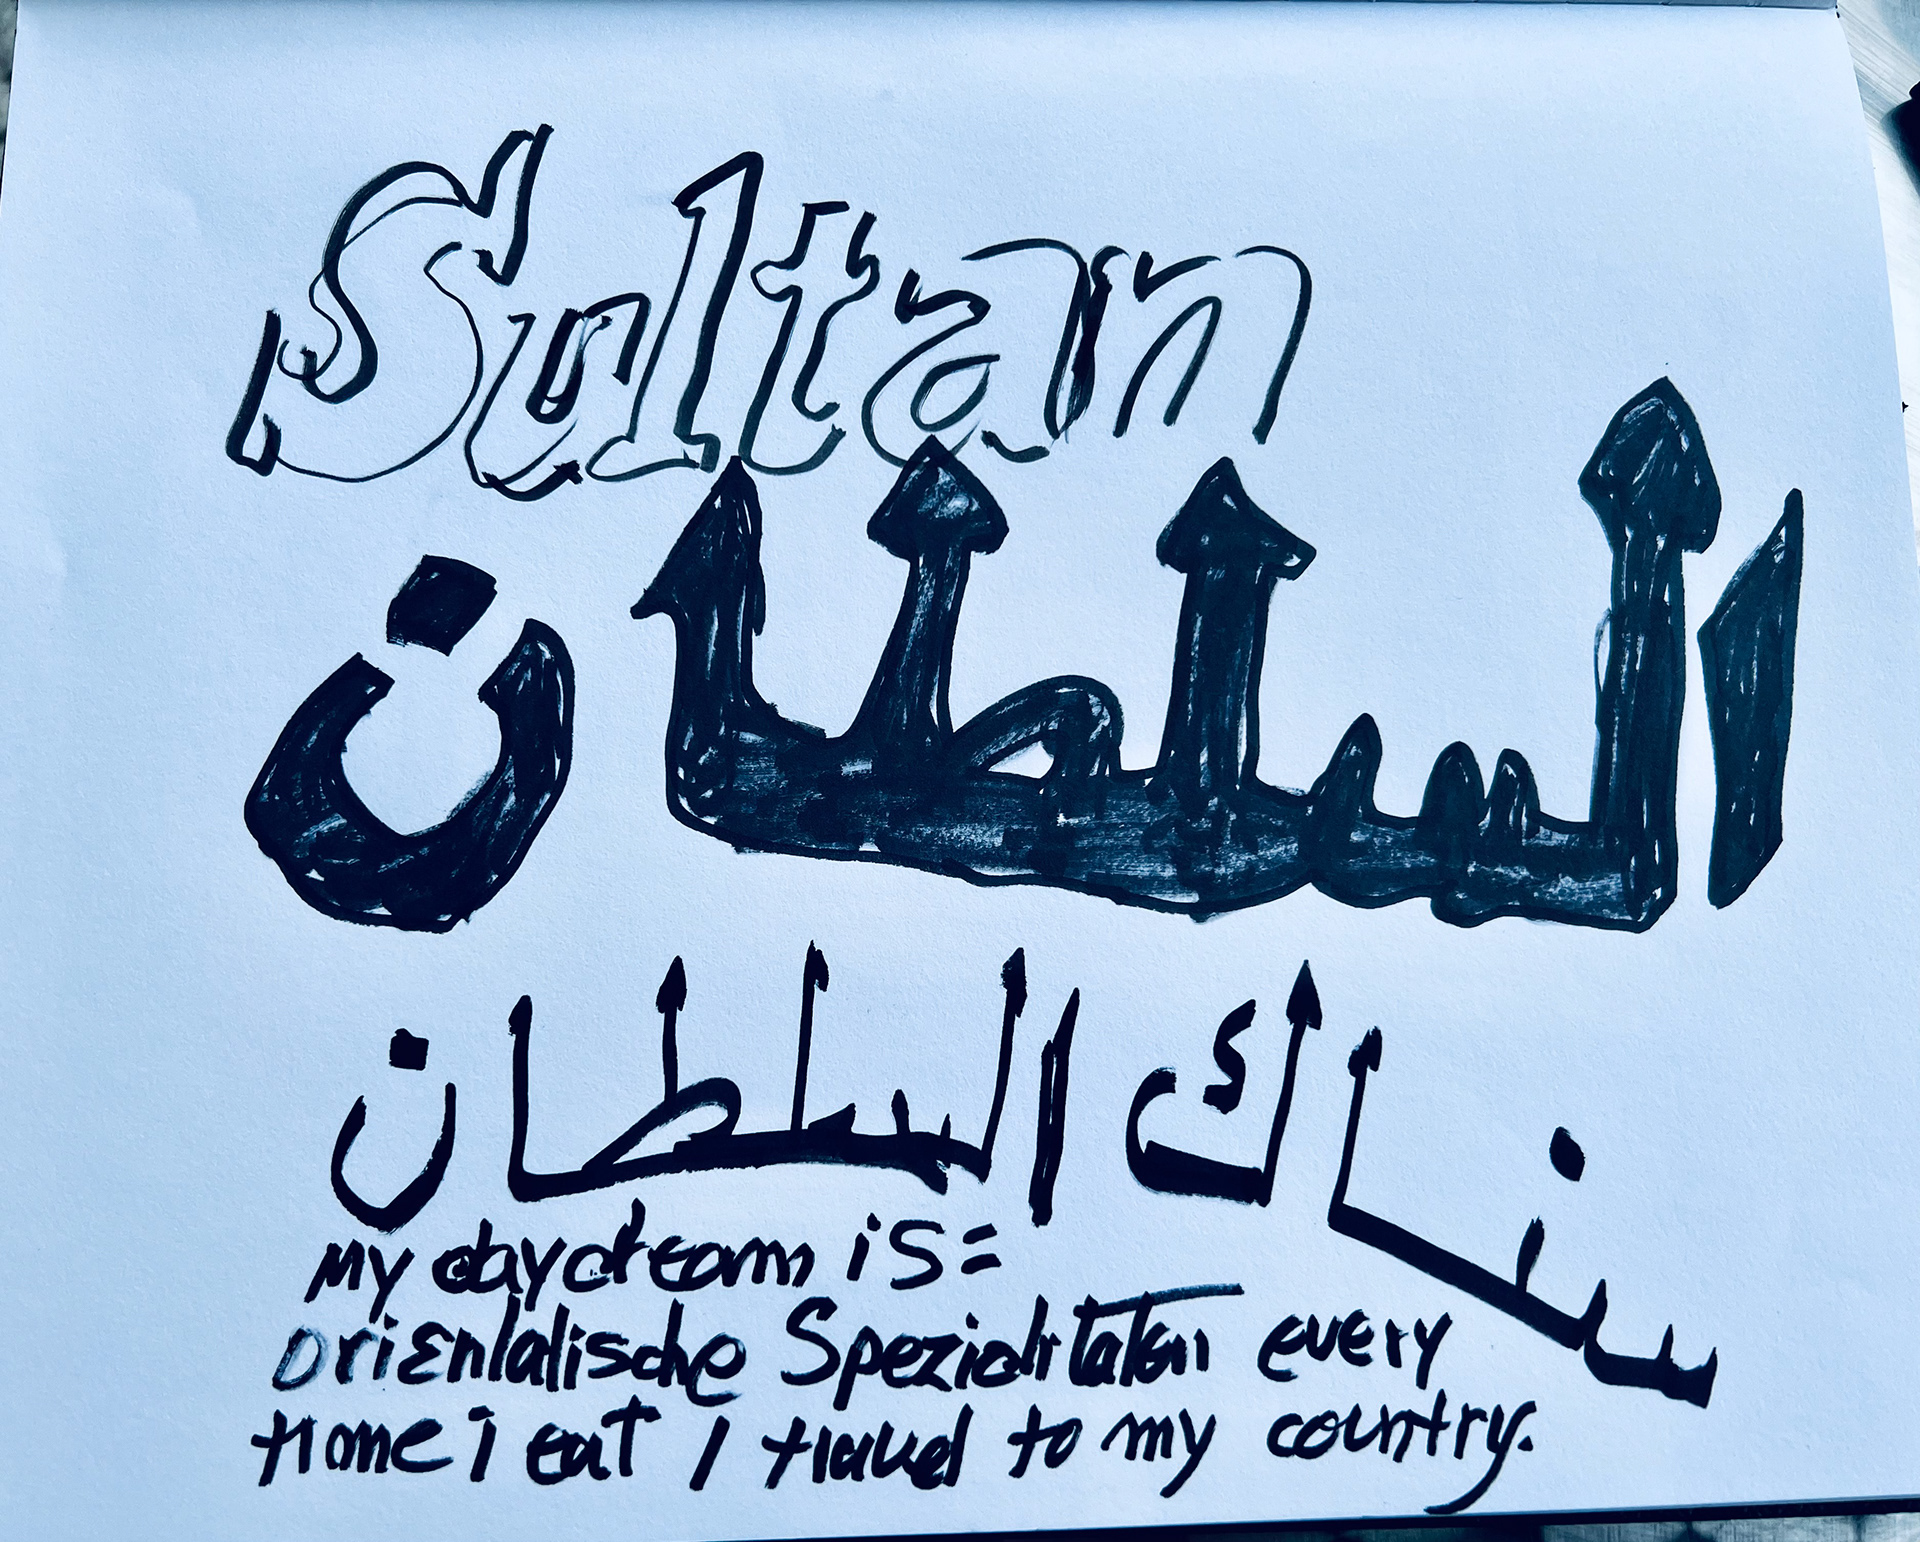 Sultan
السلطان
سناك السلطان
My daydream is=
Orientalische Spezialitäten every
time i eat I travel to my country.